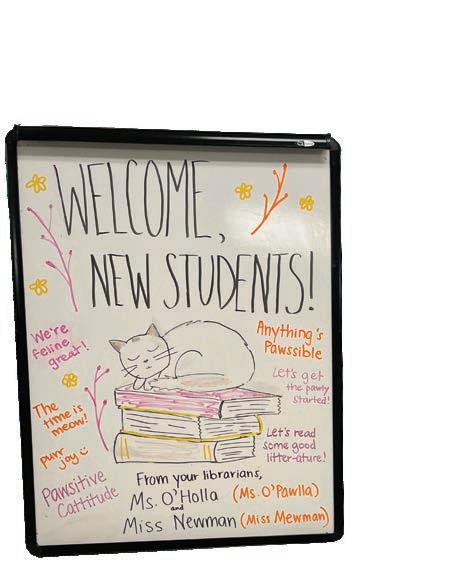 WELCOME,
NEW STUDENTS!
We're
feline
great!
The
time is
meow!
purr
joy
Pawsitive
Cattitude
Anything's
Pawssible
Let's get
the pawty
started!
Let's read
some good
litter-ature!
From your librarians,
Ms. O'Holla (Ms. O'Pawlla)
and
Miss Newman (Miss Mewman)